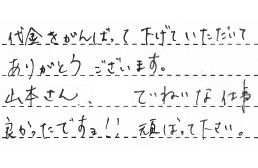 代金をがんばって下げていただいて
ありがとうございます。
山本さん、ていねいな仕事
良かったです!! 頑ばって下さい。